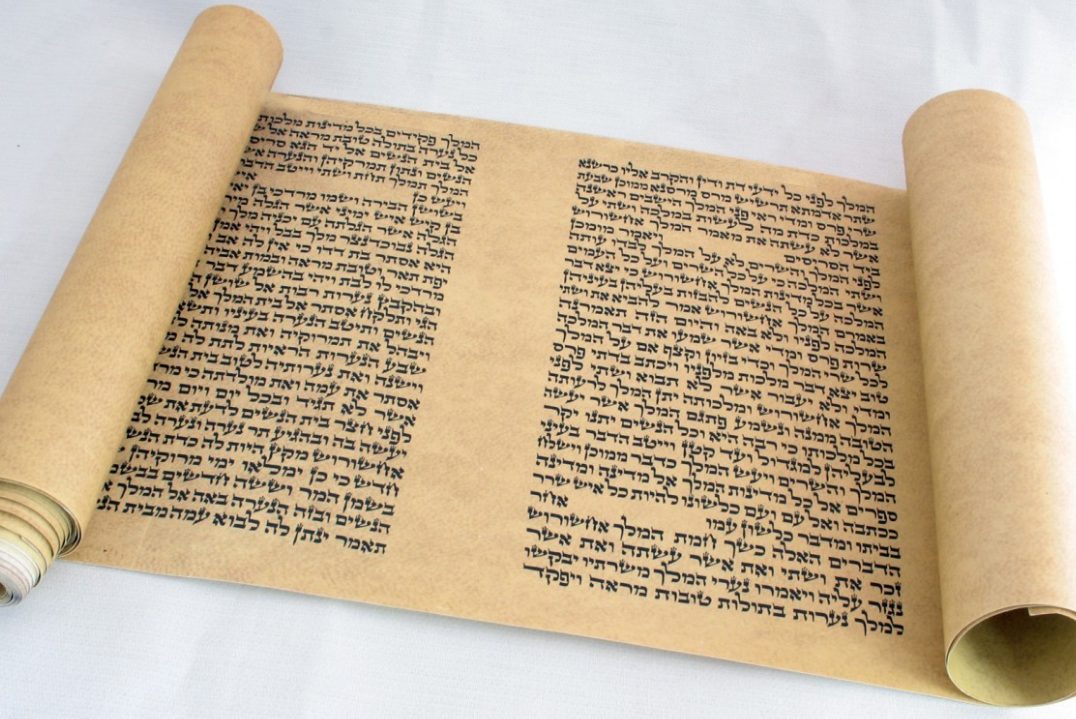 המלך לפני כל ידעי דת ודין והקרב אליו כרשנא
שתר אדמתא תרשיש מרס מרסנא ממוכן שבעת
שרי פרס ומדי ראי פני המלך הישבים ראשנה
במלכות כדת מה לעשות במלכה ושתי על
אשר לא עשתה את מאמר המלך אחשורוש
ביד הסריסים ויאמר מומכן
לפני המלך והשרים לא על המלך לבדו עותה
ושתי המלכה כי על כל השרים ועל כל העמים
אשר בכל מדינות המלך אחשורוש כי יצא דבר
המלכה על כל הנשים להבזות בעליהן בעיניהן
באמרם המלך אחשורוש אמר להביא את ושתי
המלכה לפניו ולא באה והיום הזה תאמרנה
שרות פרס ומדי אשר שמעו את דבר המלכה
לכל שרי המלך וכדי בזיון וקצף אם על המלך
טוב יצא דבר מלכות מלפניו ויכתב בדתי פרס
ומדי ולא יעבור אשר לא תבוא ושתי לפני
המלך אחשורוש ומלכותה יתן המלך לרעותה
הטובה ממנה ונשמע פתגם המלך אשר יעשה
בכל מלכותו כי רבה היא וכל הנשים יתנו יקר
לבעליהן למגדול ועד קטן וייטב הדבר בעיני
המלך והשרים ויעש המלך כדבר ממוכן וישלח
ספרים אל כל מדינות המלך אל מדינה ומדינה
ככתבה ואל עם ועם כלשונו להיות כל איש שרר
בביתו ומדבר כלשון עמו אחר
הדברים האלה כשך חמת המלך אחשורוש
זכר את ושתי ואת אשר עשתה ואת אשר
נגזר עליה ויאמרו נערי המלך משרתיו יבקשו
למלך נערות בתולות טובות מראה ויפקד
המלך פקידים בכל מדינות
כל נערה בתולה טובת מראה אל
אל בית הנשים אל יד הגא
הנשים ונתון תמרקיהן והנערה
המלך תמלך תחת ושתי וייטב
ויעש כן
בשושן הבירה ושמו מרדכי בן
בן קיש איש ימיני אשר הגלה
הגלה אשר הגלתה עם יכניה מלך
הגלה נבוכדנצר מלך בבל ויהי אמן
היא אסתר בת דדו כי אין לה אב
יפת תאר וטובת מראה ובמות אביה
מרדכי לו לבת ויהי בהשמע דבר
ובהקבץ נערות רבות אל
הגי ותלקח אסתר אל בית המלך
הנשים ותיטב הנערה בעיניו
ויבהל את תמרוקיה ואת מנותה
שבע הנערות הראיות לתת לה
וישנה ואת נערותיה לטוב בית
אסתר את עמה ואת מולדתה כי
אשר לא תגיד ובכל יום ויום
לפני חצר בית הנשים לדעת את
יעשה בה ובהגיע תר נערה ונערה
אחשורוש מקץ היות לה כדת
חדש כי כן ימלאו ימי מרוקיהן
בשמן המר וששה חדשים
הנשים ובזה הנערה באה אל המלך
תאמר ינתן לה לבוא עמה מבית